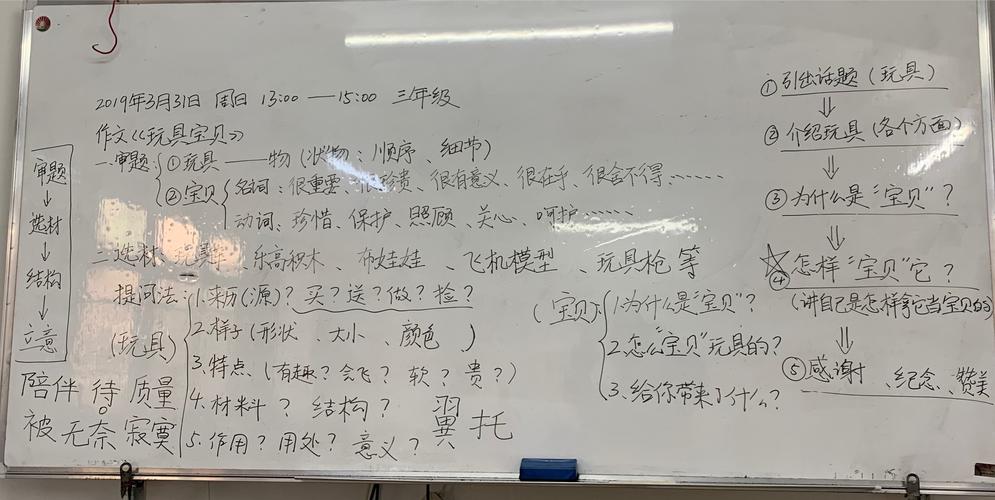 2019年3月31日 周日 13:00——15:00 三年级
作文《玩具宝贝》
一.审题:①玩具——物(状物:顺序、细节)
②宝贝
名词:很重要、很珍贵、很有意义、很在乎、很舍不得……
动词、珍惜、保护、照顾、关心、呵护……
二.选材、玩具车、乐高积木、布娃娃、飞机模型、玩具枪等
提问法:
(玩具)
1.来历(源)?买?送?做?捡?
2.样子(形状、大小、颜色)
3.特点、(有趣?会飞?软?贵?)
4.材料?结构?
5.作用?用处?意义?
翼托
(宝贝)、
1.为什么是“宝贝”?
2.怎么“宝贝”玩具的?
3.给你带来了什么?
审题
↓
选材
↓
结构
↓
立意
陪伴 待。质量
被无奈寂寞
①引出话题(玩具)
⇓
②介绍玩具(各个方面)
⇓
③为什么是“宝贝”?
⇓
☆④怎样“宝贝”它?
(讲自己是怎样拿它当宝贝的)
⇓
⑤感谢、纪念、赞美